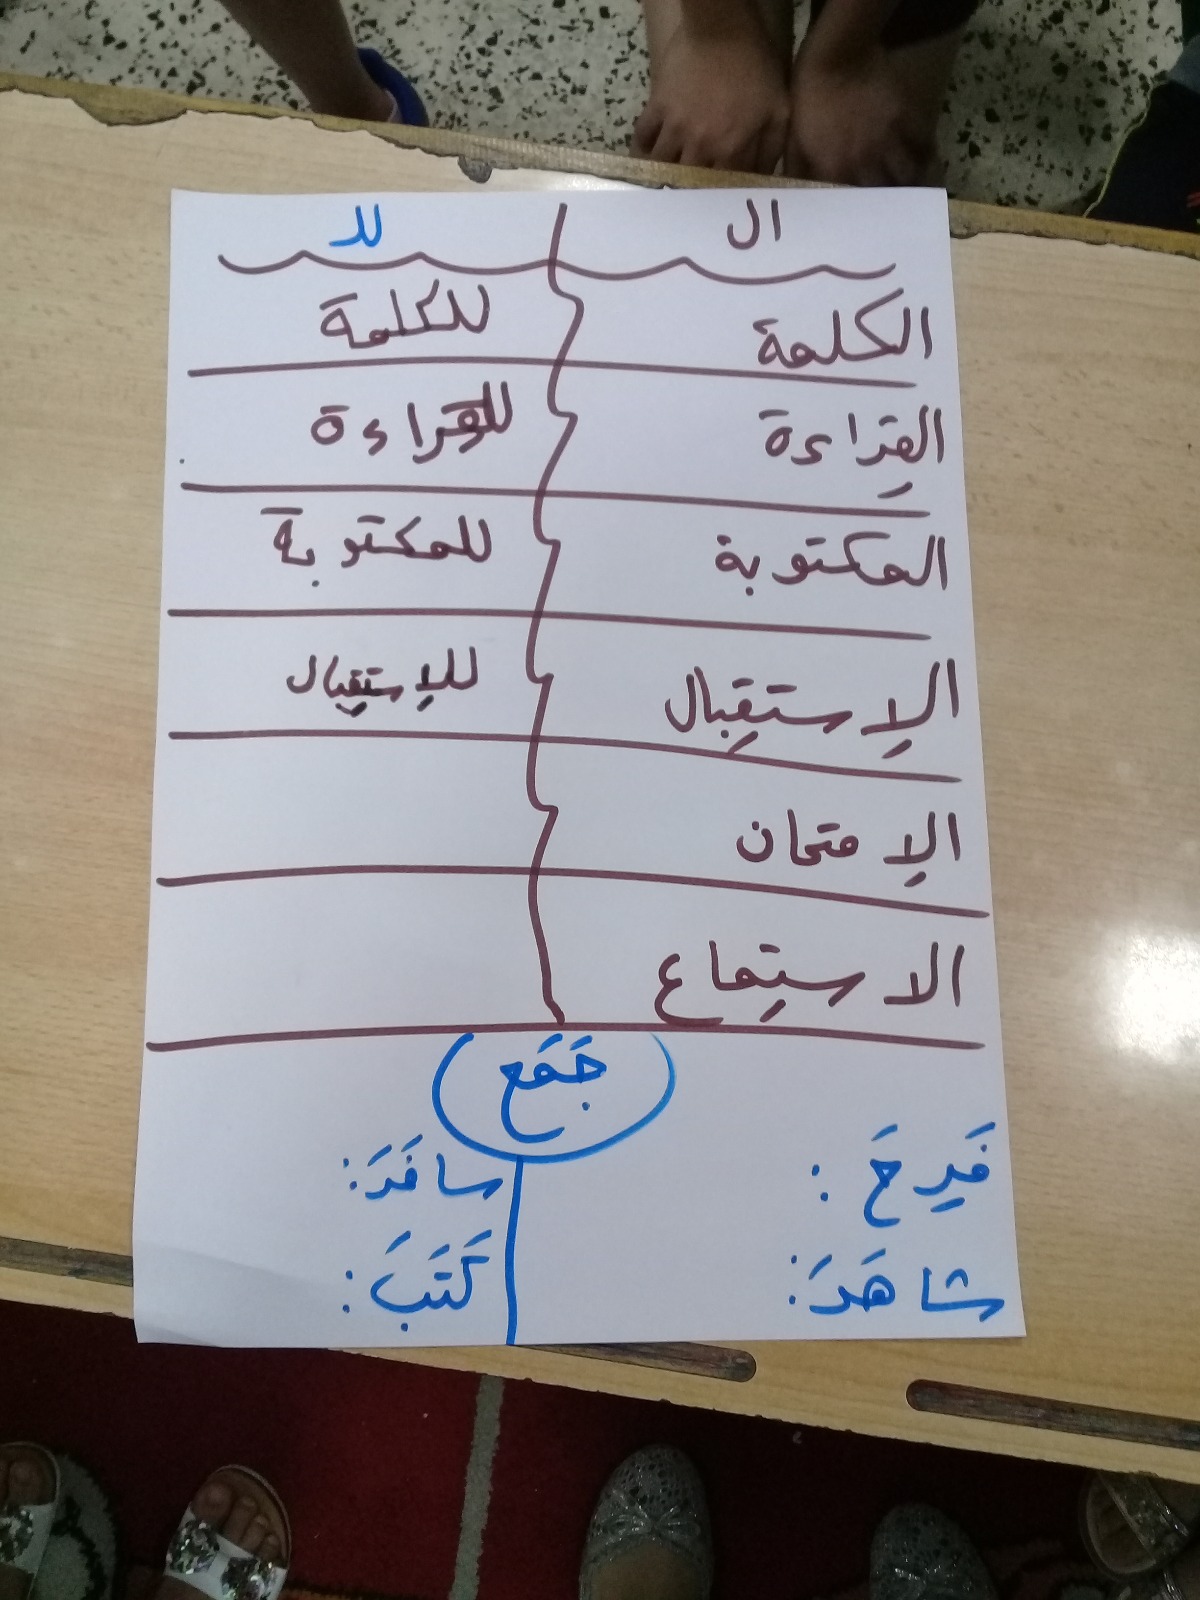 ال للـ
الكلمة للكلمة
القِراءة للقِراءة
المكتوبة للمكتوبة
الإستقِبال للإستقِبال
الإمتحان
الاستِماع
جَمَع
فَرِحَ : سافَرَ:
شاهَدَ: كَتَبَ: